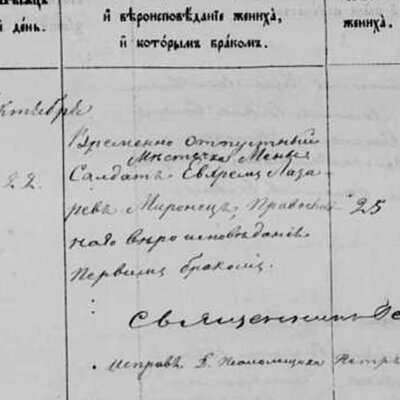 й день.
и вѣроисповѣданіе жениха,
и которымъ бракомъ.
жениха.
Октября
22.
Временно отпускный
Мѣстечка Мены
Салдатъ Евфремъ Лаза-
ревъ Миронецъ, Православ-
наго вѣроисповѣданія
первымъ бракомъ.
25
Священникъ